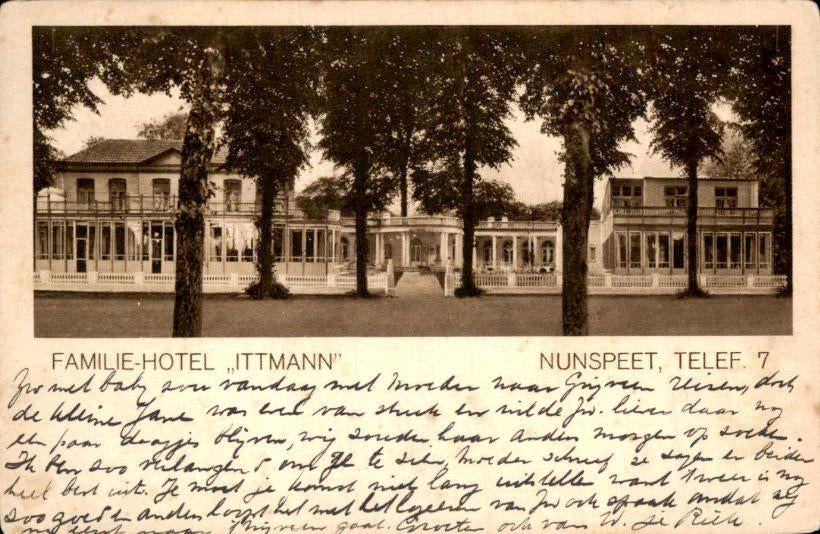 FAMILIE-HOTEL „ITTMANN" NUNSPEET, TELEF. 7
Jw met baby zou vandaag met Moeder naar reizen, doch
de kleine Jane was van streek en wilde Jw. liever daar nog
een paar daagjes blijven, wij zouden haar anders morgen op
Ik ben zoo verlangend om je te zien, Moeder schreef ze zagen er beider
heel best uit. Je moet je komst niet lang uitstellen want 't weer is nog
zoo goed en anders loopt het met het van Jw ook spaak omdat zij
naar gaat. Groeten ook van W. je Riek.